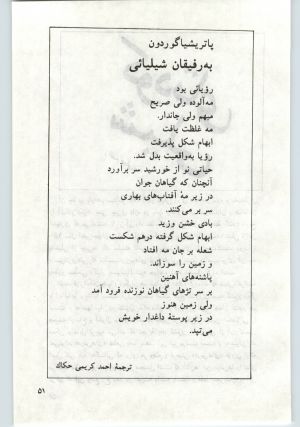 پاتریشیاگوردون
به رفیقان شیلیائی
رؤیائی بود
مه‌آلوده ولی صریح
مبهم ولی جاندار.
مه غلظت یافت
ابهام شکل پذیرفت
رؤیا به‌واقعیت بدل شد.
حیاتی نو از خورشید سر برآورد
آنچنان که گیاهان جوان
در زیر مهٔ آفتاب‌های بهاری
سر بر می‌کنند.
بادی خشن وزید
ابهام شکل گرفته درهم شکست
شعله بر جان مه افتاد
و زمین را سوزاند.
پاشنه‌های آهنین
بر سر تژهای گیاهان نوزنده فرود آمد
ولی زمین هنوز
در زیر پوستهٔ داغدار خویش
می‌تپد.
ترجمهٔ احمد کریمی حکاك
۵۱